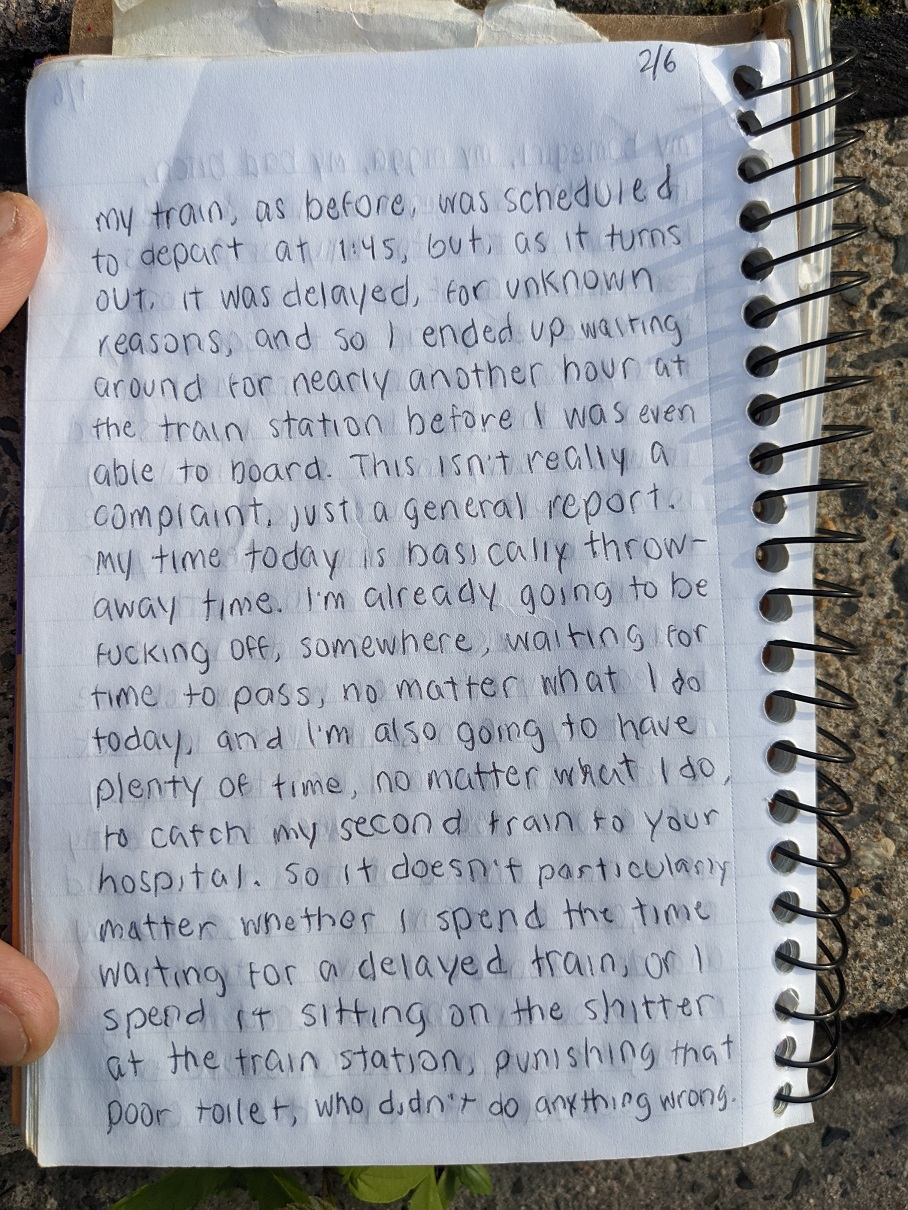 2/6
my train, as before, was scheduled
to depart at 1:45, but, as it turns
out, it was delayed, for unknown
reasons, and so I ended up waiting
around for nearly another hour at
the train station before I was even
able to board. This isn't really a
complaint, just a general report.
My time today is basically throw-
away time. I'm already going to be
fucking off, somewhere, waiting for
time to pass, no matter what I do
today, and I'm also going to have
plenty of time, no matter what I do,
to catch my second train to your
hospital. So it doesn't particularly
matter whether I spend the time
waiting for a delayed train, or I
spend it sitting on the shitter
at the train station, punishing that
poor toilet, who didn't do anything wrong.